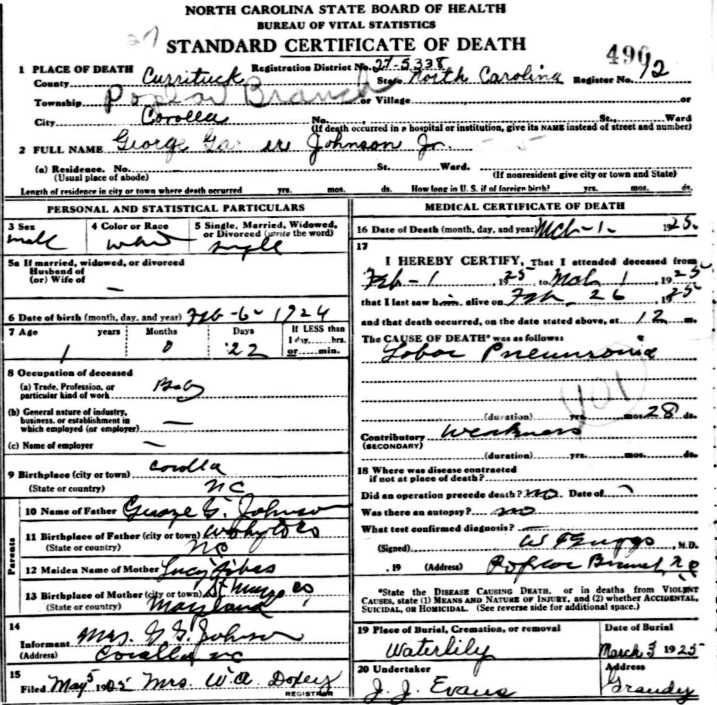 NORTH CAROLINA STATE BOARD OF HEALTH
BUREAU OF VITAL STATISTICS
27
STANDARD CERTIFICATE OF DEATH
490
1 PLACE OF DEATH Registration District No. 27-5338 Register No. 12
County Currituck State North Carolina
Township Poplar Branch or Village or
City Corolla No. St., Ward
(If death occurred in a hospital or institution, give its NAME instead of street and number)
2 FULL NAME George Johnson Jr.
(a) Residence. No. St. Ward.
(Usual place of abode) (If nonresident give city or town and State)
Length of residence in city or town where death occurred yrs. mos. ds. How long in U. S. if of foreign birth? yrs. mos. ds.
PERSONAL AND STATISTICAL PARTICULARS
3 Sex 4 Color or Race 5 Single, Married, Widowed,
or Divorced (write the word)
male single
5a If married, widowed, or divorced
Husband of
(or) Wife of —
6 Date of birth (month, day, and year) Feb-6-1924
7 Age years Months Days If LESS than
1 day, hrs.
1 0 22 or min.
8 Occupation of deceased
(a) Trade, Profession, or
particular kind of work Baby
(b) General nature of industry,
business, or establishment in
which employed (or employer) —
(c) Name of employer —
9 Birthplace (city or town) Corolla
(State or country) NC
Parents
10 Name of Father George G. Johnson
11 Birthplace of Father (city or town)
(State or country) NC
12 Maiden Name of Mother Lucy
13 Birthplace of Mother (city or town) St Co
(State or country) Maryland
14
Informant Mrs. G. G. Johnson
(Address) Corolla NC
15
Filed May 5 1925 Mrs. W. A. Doxey
REGISTRAR
MEDICAL CERTIFICATE OF DEATH
16 Date of Death (month, day, and year) Mch-1- 1925.
17
I HEREBY CERTIFY, That I attended deceased from
Feb-1 1925 to Mch 1 1925
that I last saw him alive on Feb. 26 1925
and that death occurred, on the date stated above, at 12 m.
The CAUSE OF DEATH* was as follows:
Lobar Pneumonia
101
(duration) yrs. mos. 28 ds.
Contributory Weakness
(SECONDARY)
(duration) yrs. mos. ds.
18 Where was disease contracted
if not at place of death?
Did an operation precede death? no Date of
Was there an autopsy? no
What test confirmed diagnosis?
(Signed) W T Griggs, M.D.
, 19 (Address) Poplar Branch, N.C.
*State the DISEASE CAUSING DEATH, or in deaths from VIOLENT
CAUSES, state (1) MEANS AND NATURE OF INJURY, and (2) whether ACCIDENTAL,
SUICIDAL, OR HOMICIDAL. (See reverse side for additional space.)
19 Place of Burial, Cremation, or removal Date of Burial
Waterlily March 3 1925
20 Undertaker Address
J. J. Evans Grandy